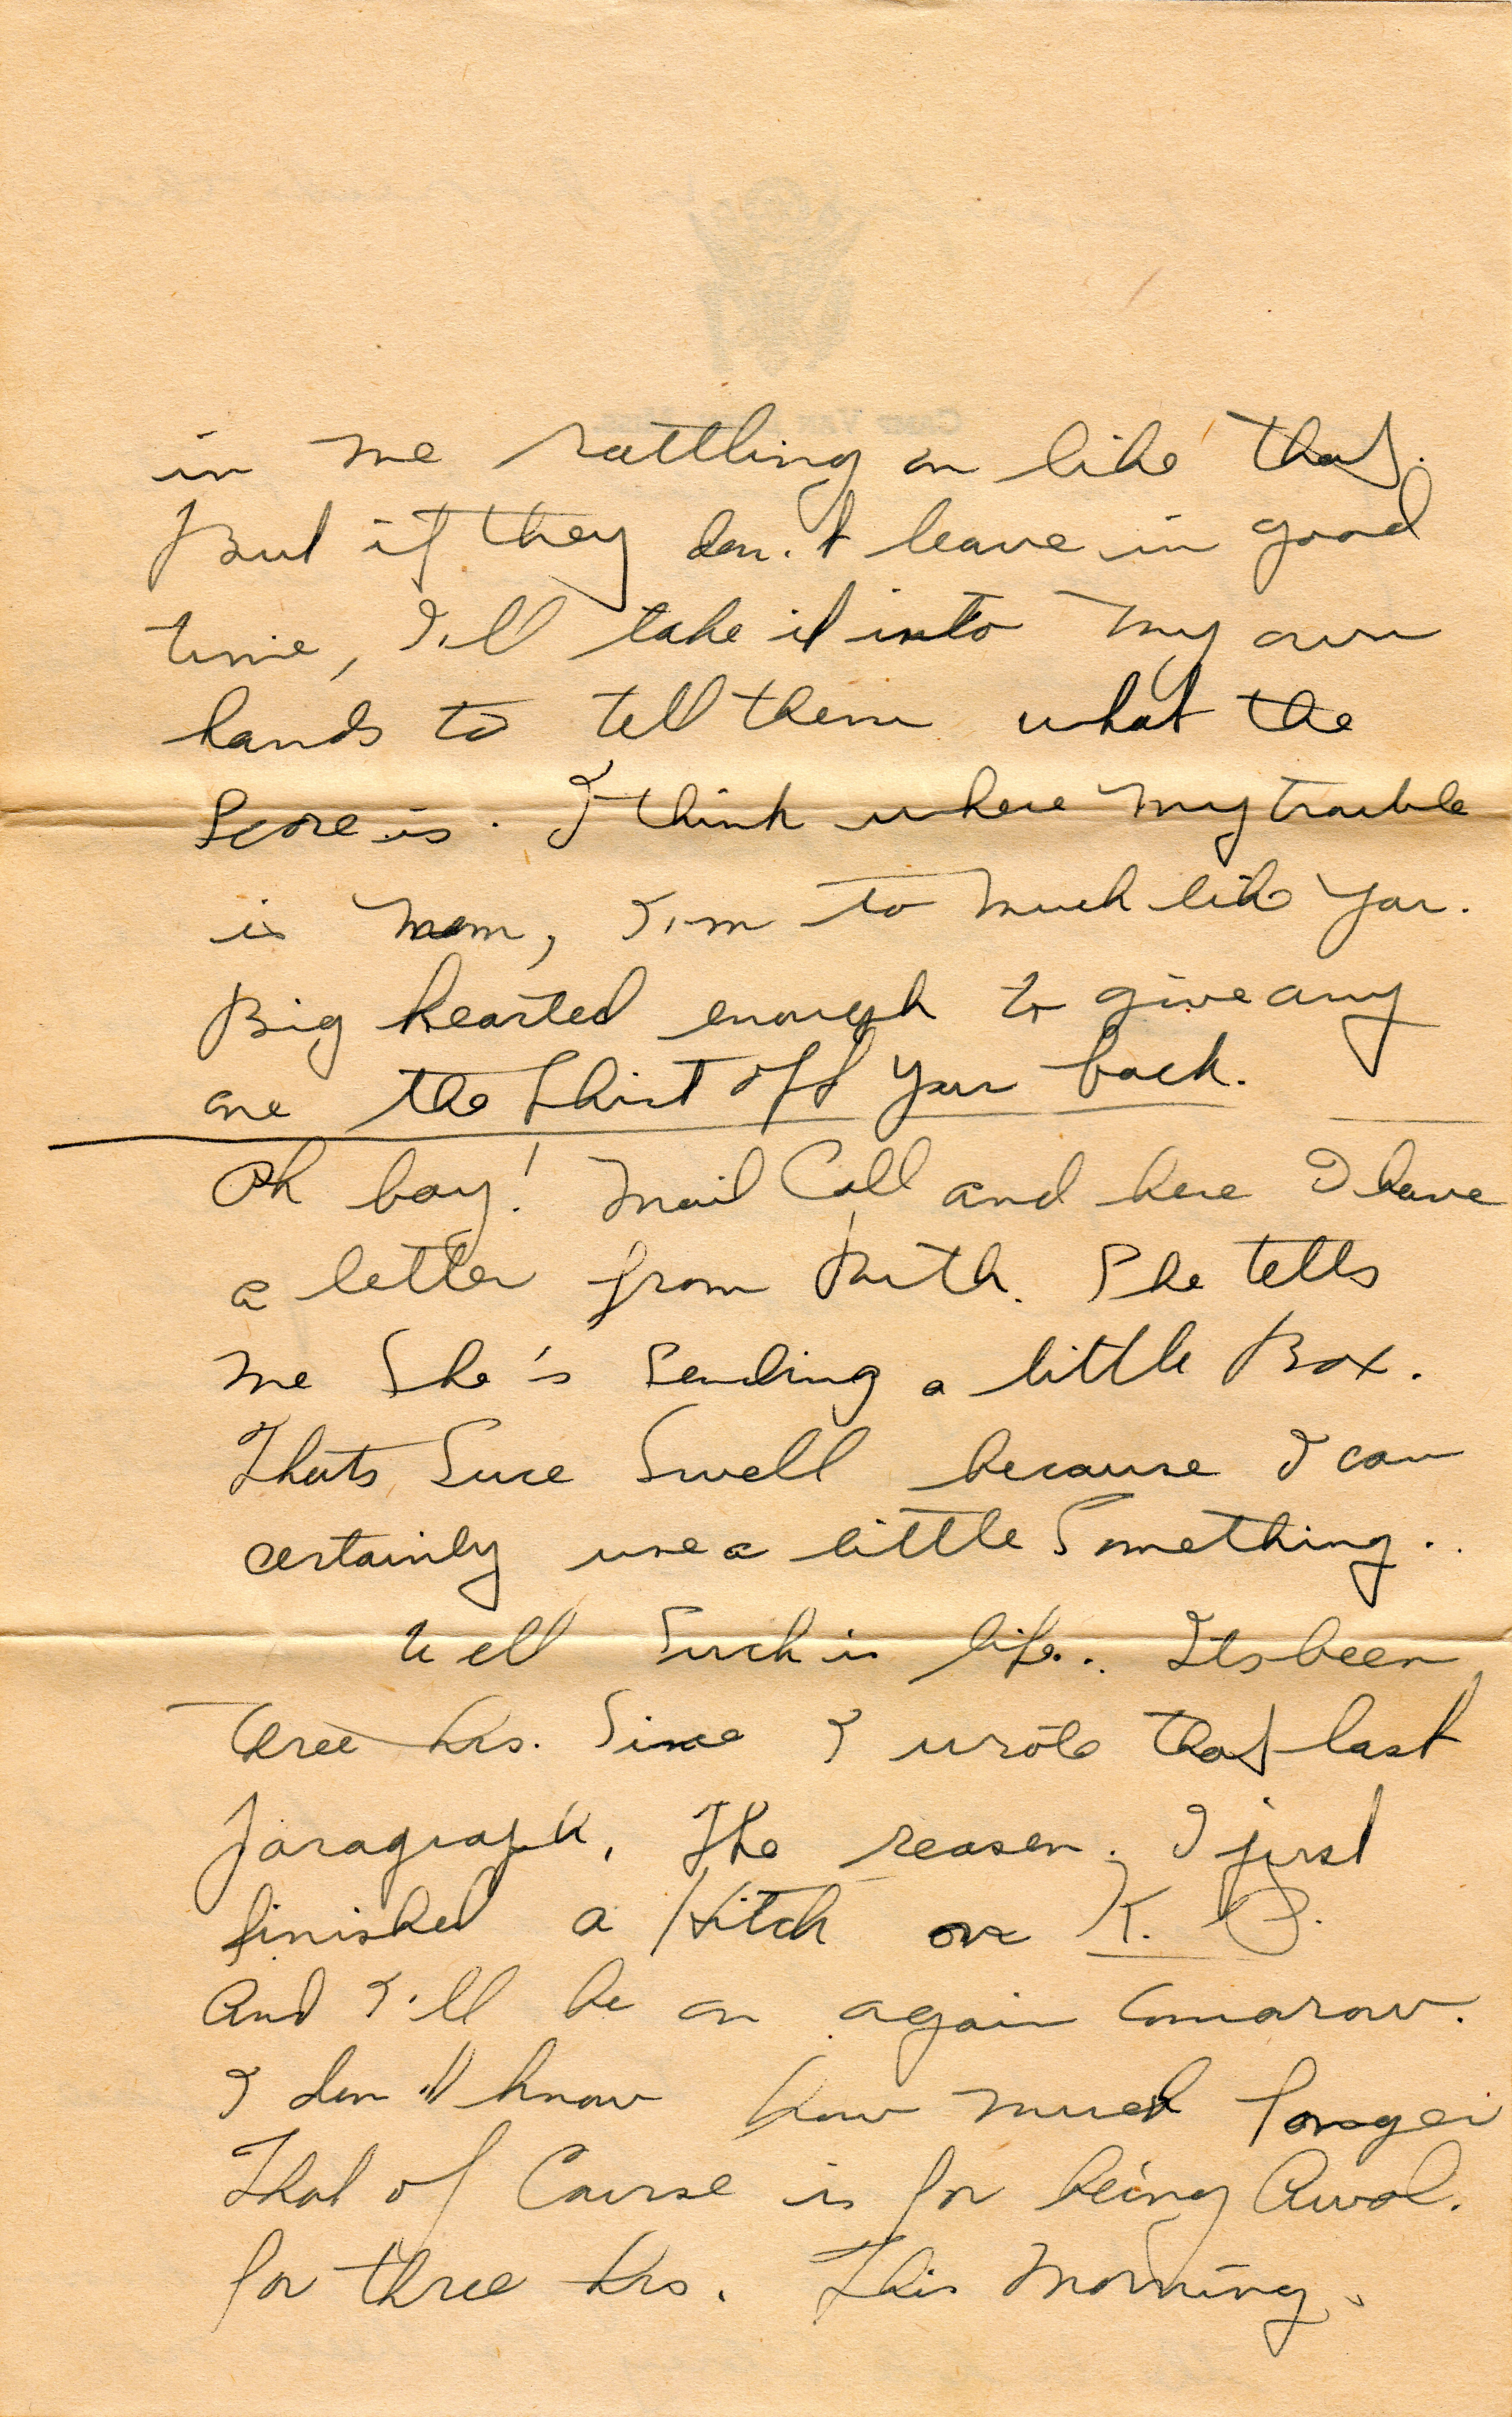 in me rattling on like that.
But if they don't leave in good
time, I'll take it into my own
hands to tell them what the
Score is. I think where my trouble
is mom, I'm to much like you.
Big hearted enough to give any
one the Shirt off your back.
Oh boy! Mail Call and here I have
a letter from Ruth. She tells
me She's Sending a little Box.
Thats Sure Swell because I can
certainly use a little Something..
Well Such is life.. Its been
three hrs. Since I wrote that last
Paragraph. The reason. I just
finished a hitch on K. P.
And I'll be on again tomarow.
I don't know how much longer
That of Course is for being Awol.
for three hrs. This Morning.